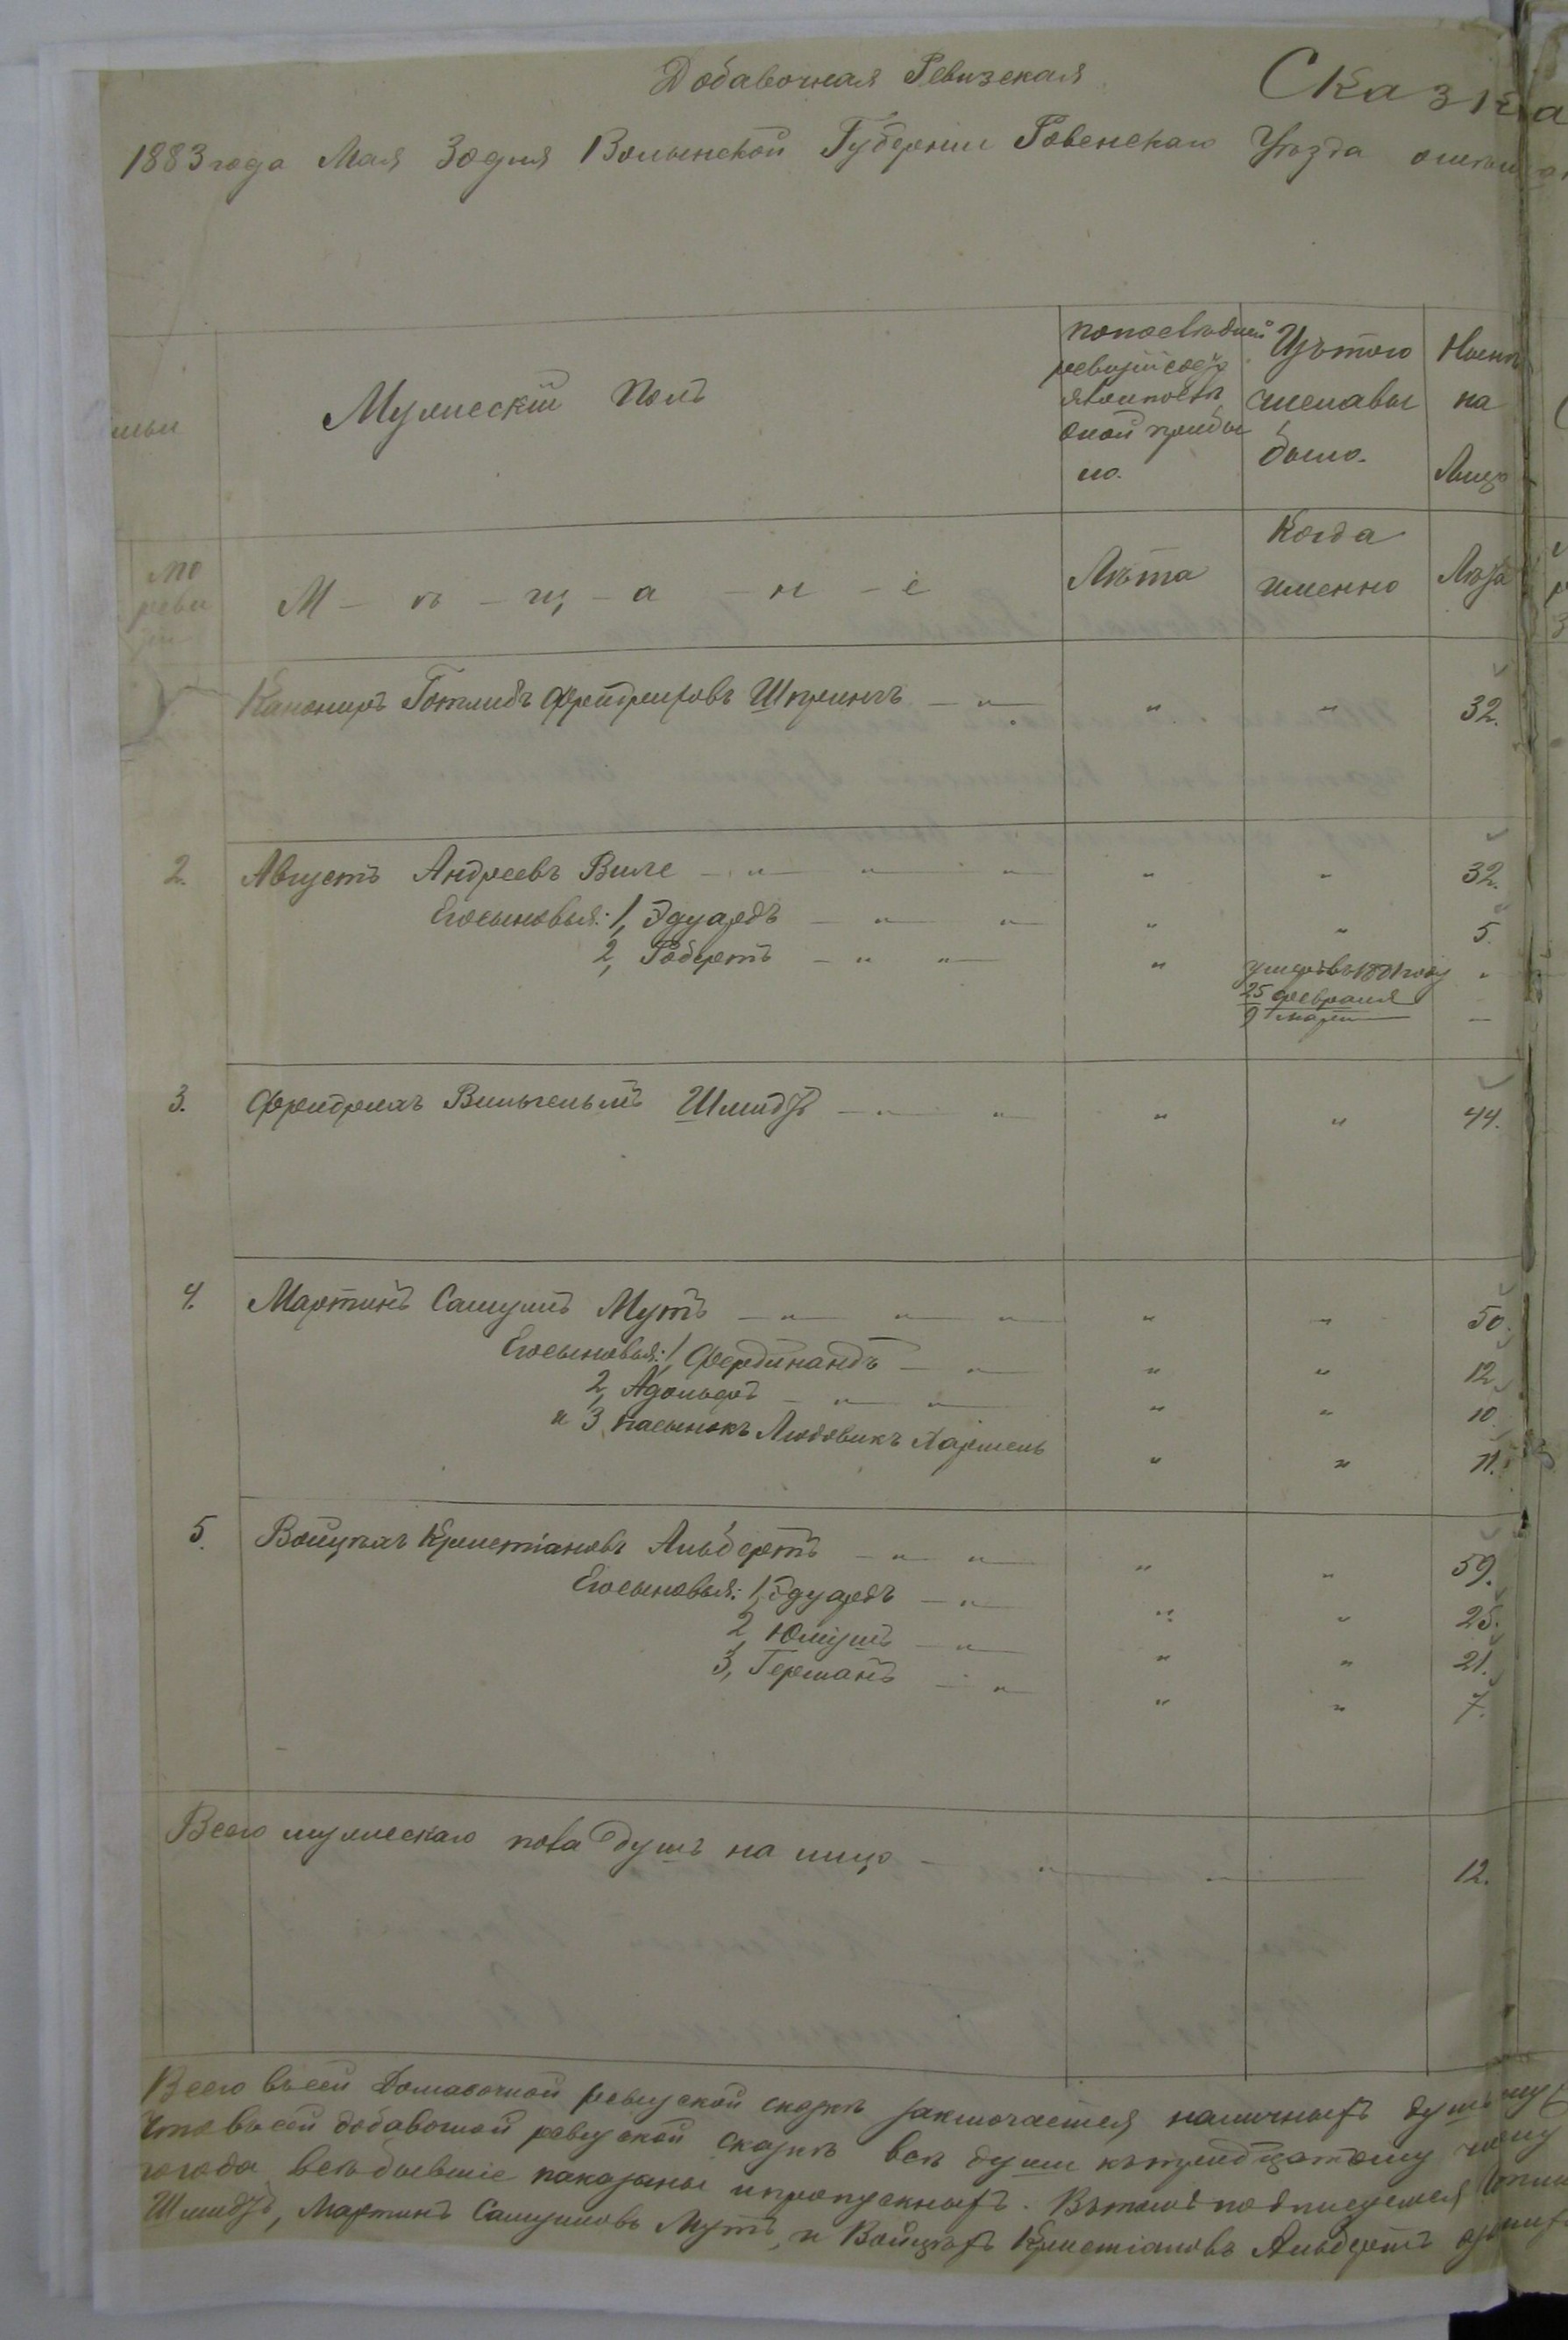 Добавочная Ревизская Сказка
1883 года Мая 30 дня Волынской Губернiи Ровенскаго Уѣзда
Мужескiй Полъ
по последней
ревизiи
прибы
ло.
Изъ того
числа вы
было.
Нынѣ
на
Лицо
по
реви
М - ѣ - щ - а - н - е
Лѣта
Когда
именно
Лѣта
Канониръ Готлибъ Фрейдриховъ 32.
2. Августъ Андреевъ Вилс " " " " " 32.
Его сыновья: 1, Эдуардъ " " " " 5.
2, Робертъ " " " умеръ въ 1881 году "
25 февраля
9 марта
3. Фрейдрихъ Вильгельмъ Шмидтъ " " " " 44.
4. Мартинъ Самуилъ Мутъ " " " " " 50.
Его сыновья: 1, Фердинандъ " " " 12
2, Адольфъ " " " " 10
и 3 пасынокъ Людовикъ " " 11.
5. Войцехъ Кристiановъ Альбертъ " " " " 59.
Его сыновья: 1, Эдуардъ " " " 25.
2, Юлiушъ " " " 21.
3, Германъ " " " 7.
Всего мужескаго пола душъ на лицо " 12.
Всего въ сей ревизской сказкѣ заключается наличныхъ душъ
Что въ сей добавочной ревизской сказкѣ всѣ души къ тридцатому
года всѣ бывшiе показаны и пропускныхъ. Въ томъ подписуемся
Шмидтъ, Мартинъ Самуиловъ Мутъ, и Войцехъ Кристiановъ Альбертъ